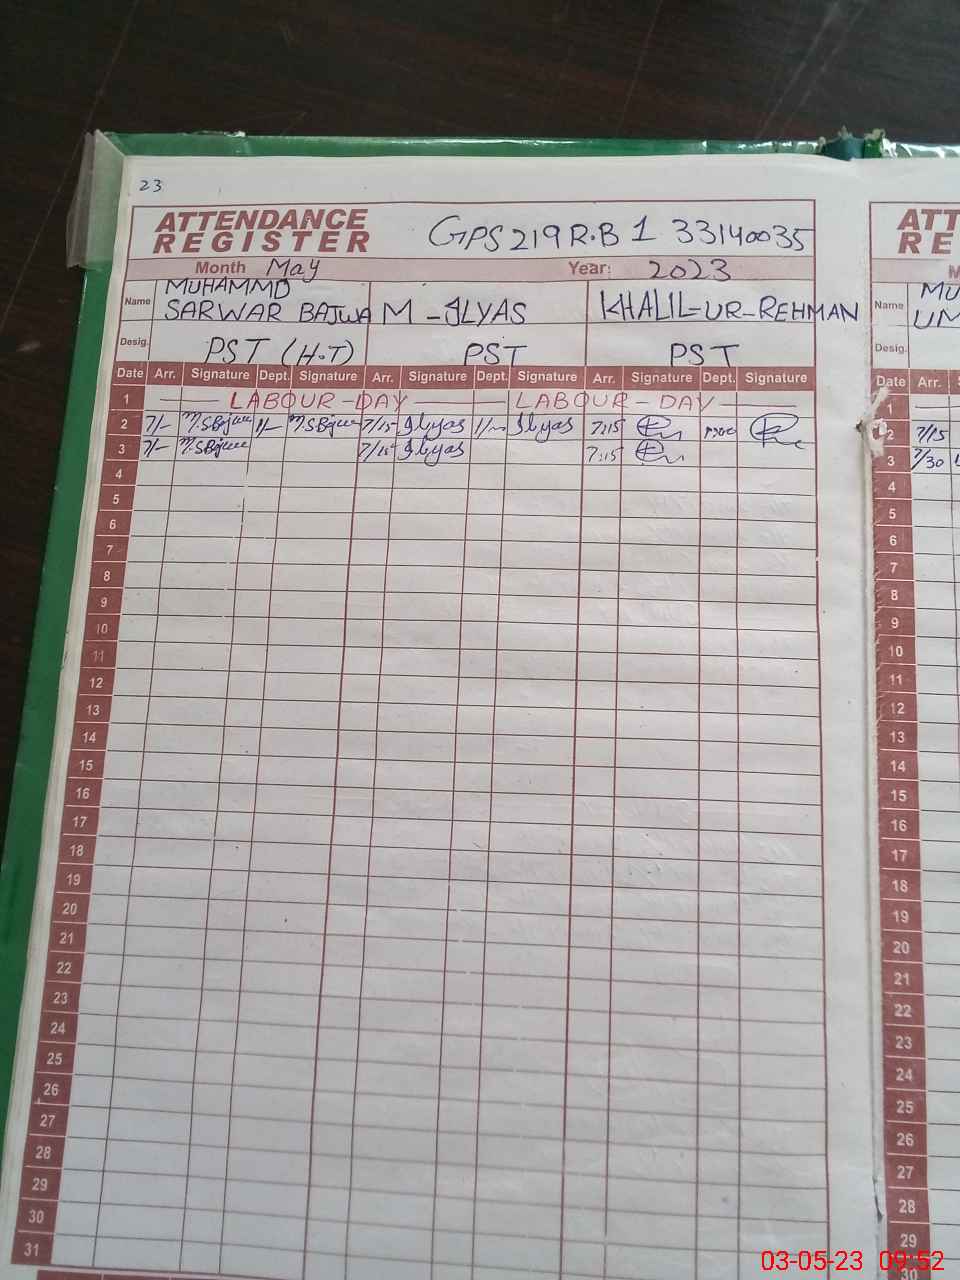 23
ATTENDANCE
REGISTER
GPS 219 R.B 1 33140035
Month May Year: 2023
Name MUHAMMD SARWAR BAJWA M-ILYAS KHALIL-UR-REHMAN
Desig. PST (H.T) PST PST
Date Arr. Signature Dept. Signature Arr. Signature Dept. Signature Arr. Signature Dept. Signature
1 LABOUR-DAY LABOUR-DAY
2 7/- M.SBajwa 1/- M.SBajwa 7/15 Ilyas Ilyas 7:15
3 7/- M.SBajwa 7/15 Ilyas 7:15
4
5
6
7
8
9
10
11
12
13
14
15
16
17
18
19
20
21
22
23
24
25
26
27
28
29
30
31
ATT
RE
M
Name MU
UM
Desig.
Date Arr. S
1
2 7/15
3 7/30
4
5
6
7
8
9
10
11
12
13
14
15
16
17
18
19
20
21
22
23
24
25
26
27
28
29
30
03-05-23 09:52